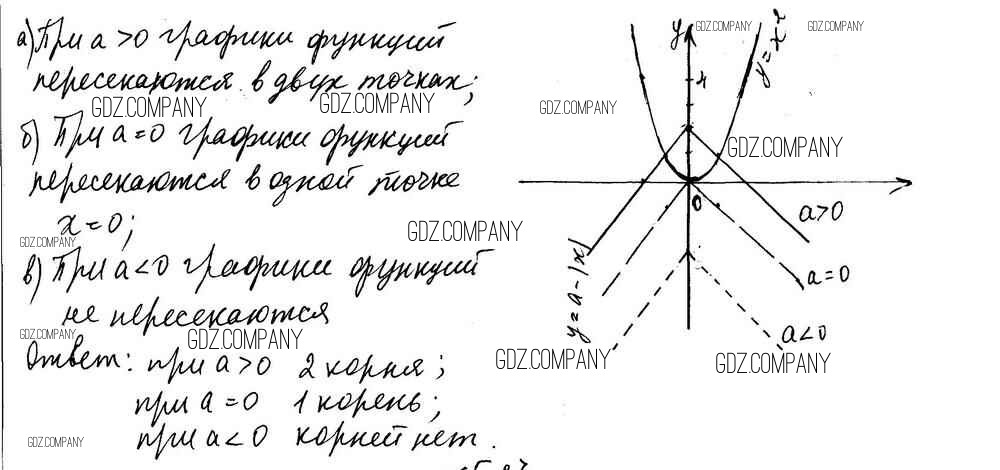 а) При a > 0 графики функций
пересекаются в двух точках;
GDZ.COMPANY
GDZ.COMPANY
б) При a = 0 графики функций
пересекаются в одной точке
x = 0;
GDZ.COMPANY
GDZ.COMPANY
в) При a < 0 графики функций
не пересекаются
GDZ.COMPANY
GDZ.COMPANY
Ответ: при a > 0 2 корня;
при a = 0 1 корень;
при a < 0 корней нет.
GDZ.COMPANY
GDZ.COMPANY
GDZ.COMPANY
y
y = x²
4
GDZ.COMPANY
GDZ.COMPANY
0
a>0
y = a - |x|
a = 0
a < 0
GDZ.COMPANY
GDZ.COMPANY